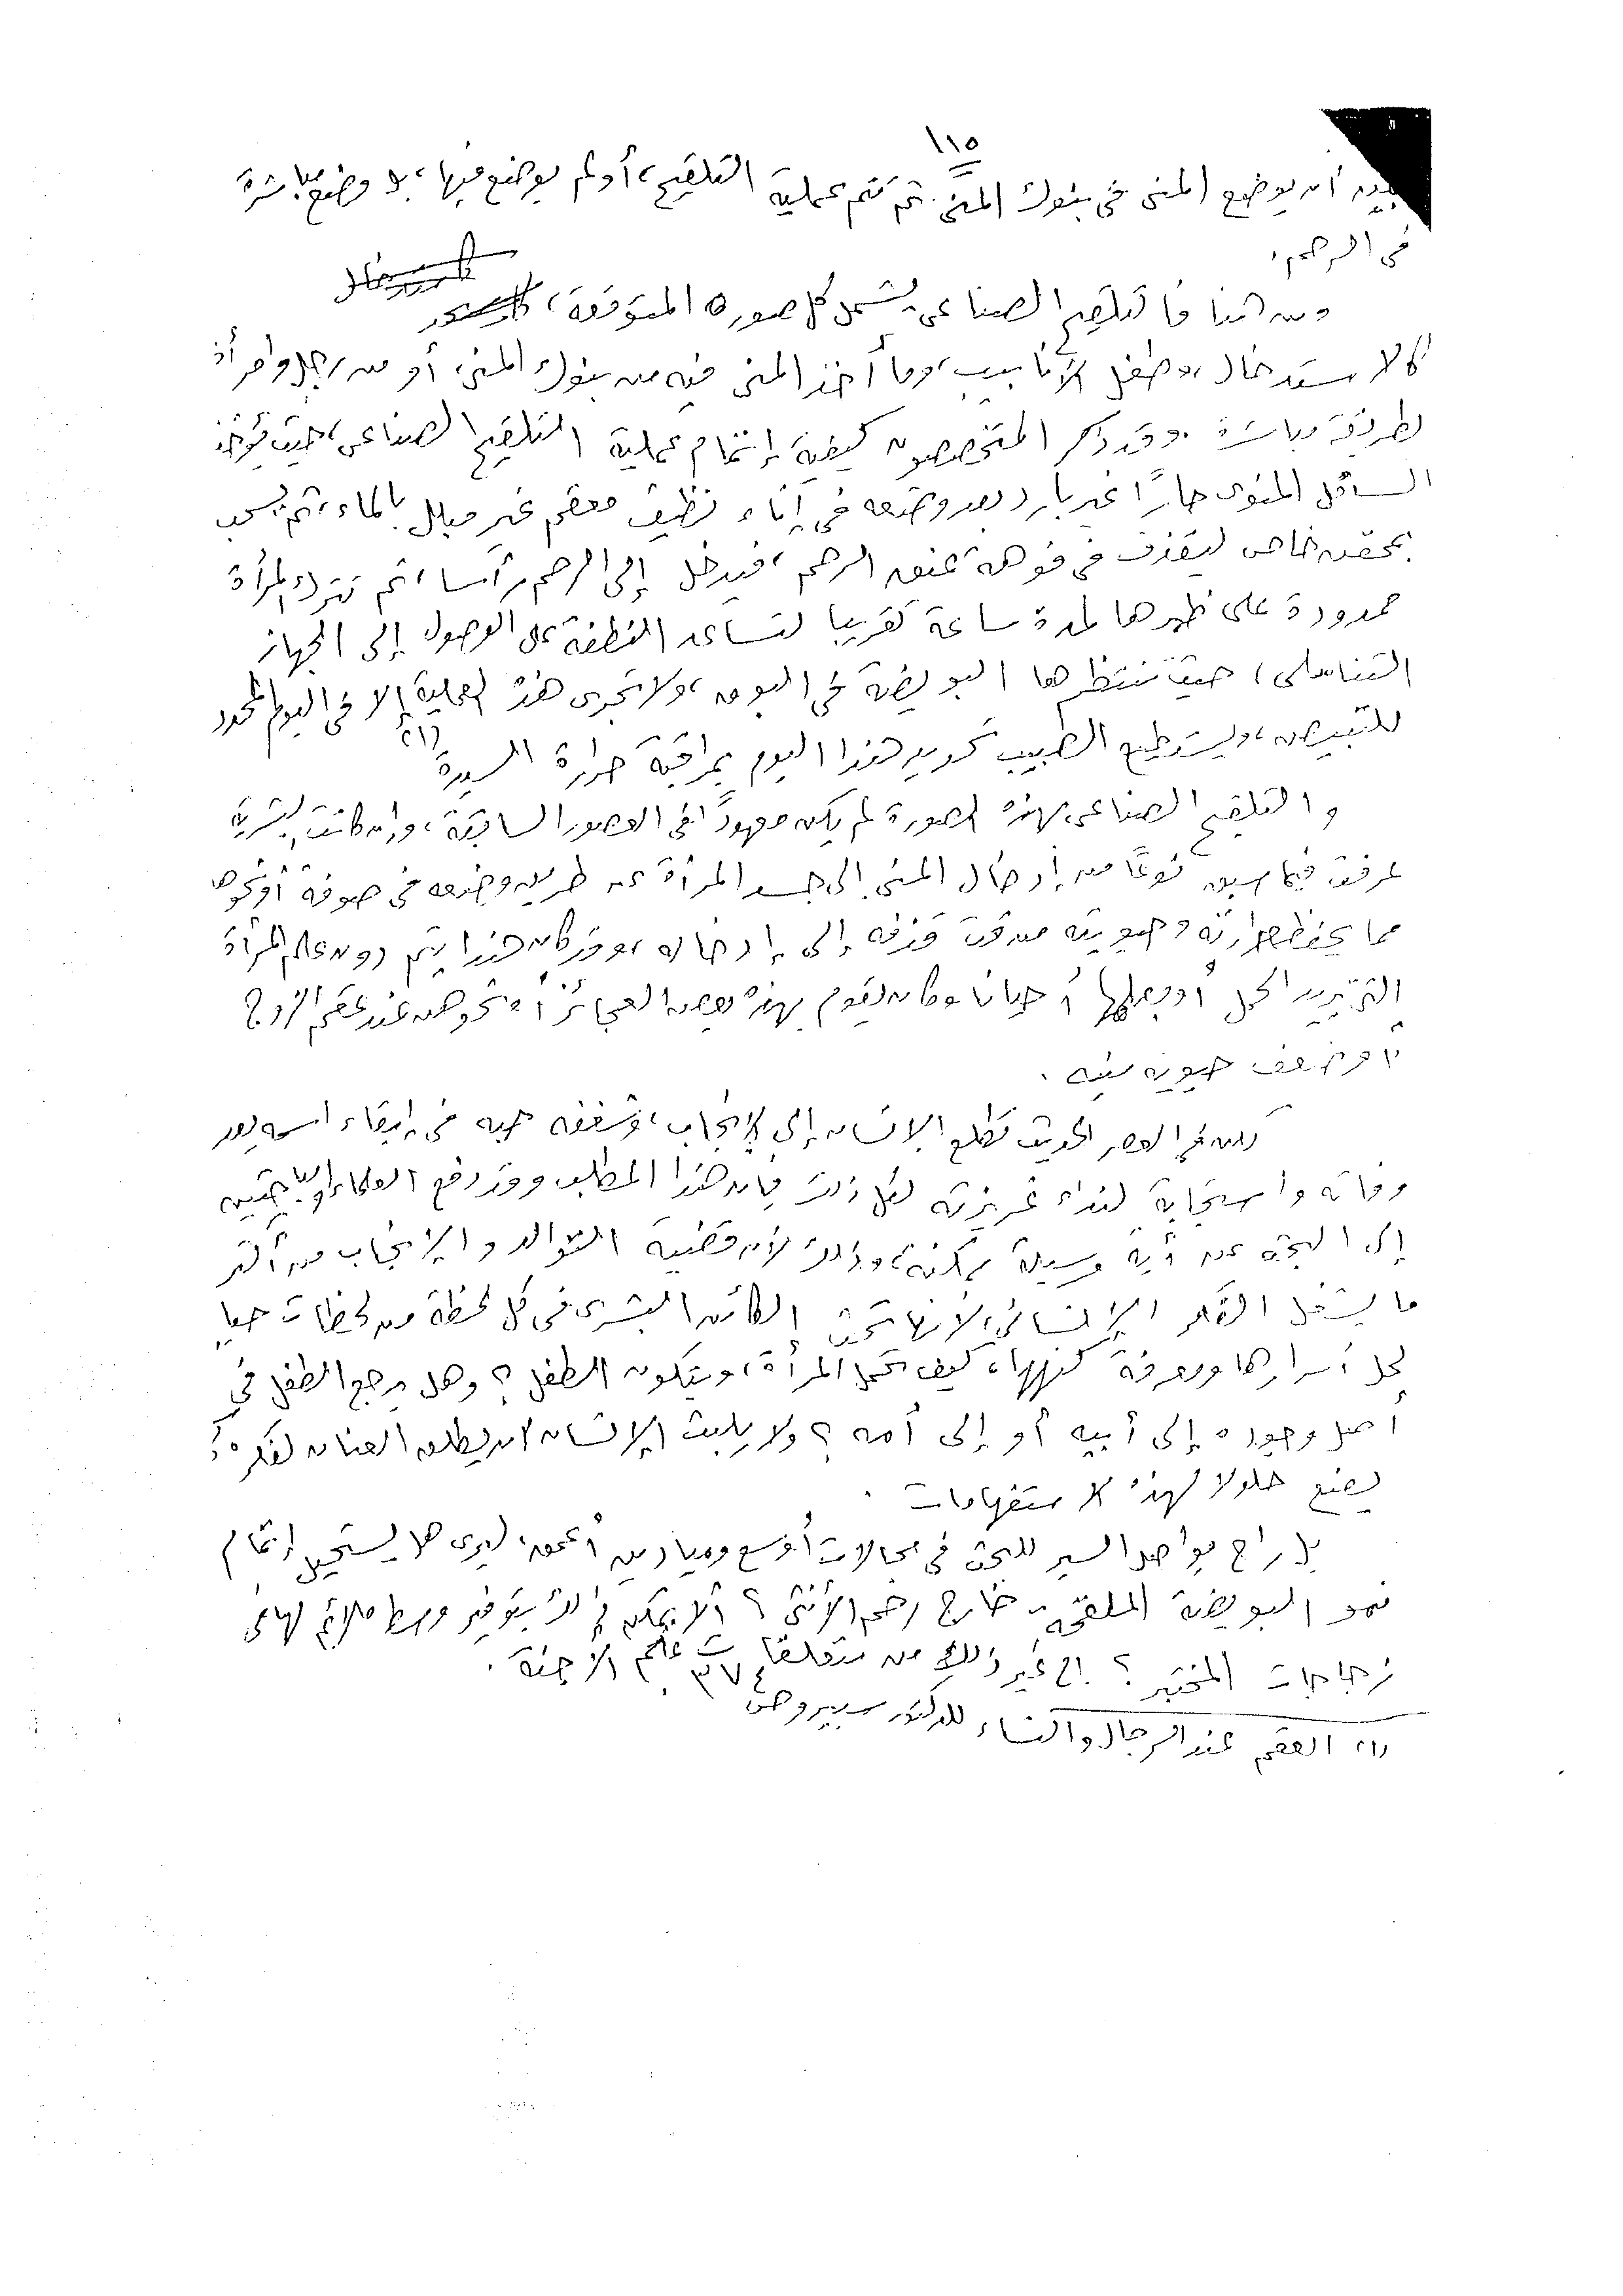 ١١٥
بين أن يوضع المنى فى بنوك المنى ثم تتم عملية التلقيح، أو لم يوضع فيها، بل وضع مباشرة
فى الرحم.
ومن هنا فالتلقيح الصناعى يشمل كل صوره المتوقعة،
كالاستدخال، وطفل الأنابيب، وما أخذ المنى فيه من بنوك المنى، أو من رجل وامرأة
بطريقة مباشرة. وقد ذكر المتخصصون كيفية إتمام عملية التلقيح الصناعى، حيث يؤخذ
السائل المنوى حارًا غير بارد بعد وضعه فى إناء نظيف معقم غير مبلل بالماء، ثم يسحب
بمحقن خاص ليقذف فى فوهة عنق الرحم، فيدخل إلى الرحم رأسا، ثم تترك المرأة
ممدودة على ظهرها لمدة ساعة تقريبا لتساعد النطفة على الوصول إلى الجهاز
التناسلى، حيث تنتظرها البويضة فى البوق، ولا تجرى هذه العملية إلا فى اليوم المحدد
للتبيض، ويستطيع الطبيب تحديد هذا اليوم بمراقبة حرارة السيدة (١)
والتلقيح الصناعى بهذه الصورة لم يكن معهودًا فى العصور السابقة، وإن كانت البشرية
عرفت فيما سبق نوعًا من إدخال المنى إلى جسد المرأة عن طريق وضعه فى صوفة أو نحوها
مما يحفظ حرارته وحيويته من وقت قذفه إلى إدخاله، وقد كان هذا يتم دون علم المرأة
التى تريد الحمل أو بعلمها أحيانا وكان يقوم بهذه بعض العجائز أو نحوهن عند عقم الزوج
أو ضعف حيوية منيه.
لكن فى العصر الحديث تطلع الإنسان إلى الإنجاب، وشغفه حبه فى إبقاء اسمه بعد
وفاته واستجابة لنداء غريزته لكل ذلك كان هذا المطلب وقد دفع العلماء والباحثين
إلى البحث عن أية وسيلة ممكنة، وذلك لأن قضية التوالد والإنجاب من أكثر
ما يشغل الفكر الإنسانى، لأنها تحث الكائن البشرى فى كل لحظة من لحظات حياته
لحل أسرارها ومعرفة كنهها، كيف تحمل المرأة، ويتكون الطفل؟ وهل يرجع الطفل فى
أصل وجوده إلى أبيه أو إلى أمه؟ ولا يلبث الإنسان أن يطلق العنان لفكره
يضع حلولا لهذه الاستفهامات.
بل راح يواصل السير للبحث فى مجالات أوسع وميادين أعمق، ليرى هل يستحيل إتمام
نمو البويضة الملقحة خارج رحم الأنثى؟ ألا يمكن ذلك بتوفير وسط ملائم لها فى
زجاجات المختبر؟ الخ غير ذلك من متعلقات علم الأجنة.
(١) العقم عند الرجال والنساء للدكتور سبيرو ص ٣٧٤